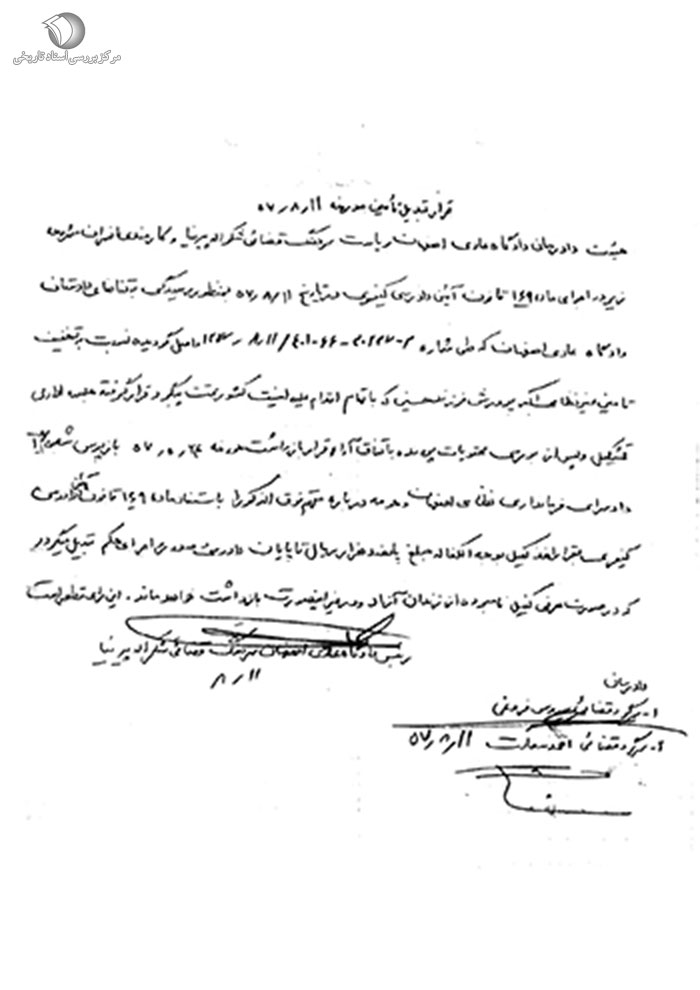 مرکز بررسی اسناد تاریخی
قرار تبدیل تأمین مورخه ۱۱ر۸ر۵۷
هیئت دادرسان دادگاه عادی اصفهان بریاست سرهنگ قضائی شکراله پیرنیا و کارمندی افسران مشروحه
زیر در اجرای ماده ۱۴۹ قانون آئین دادرسی کیفری در تاریخ ۱۱ر۸ر۵۷ بمنظور رسیدگی بتقاضای دادستان
دادگاه عادی اصفهان که طی شماره واصل گردیده نسبت به تخفیف
تامین غیرنظامی اکبر پرورش فرزند حسین که باتهام اقدام علیه امنیت کشور تحت پیگرد قرار گرفته جلسه اداری
تشکیل و پس از بررسی محتویات پرونده باتفاق آراء قرار بازداشت مورخه ۲۴ر۵ر۵۷ بازپرس شعبه
دادسرای فرمانداری نظامی اصفهان و حومه درباره متهم فوق الذکر را باستناد ماده ۱۴۹ قانون آئین دادرسی
کیفری بقرار اخذ کفیل بوجه الکفاله مبلغ پانصد هزار ریال تا پایان دادرسی و صدور و اجرای حکم تبدیل میگردد
که در صورت معرفی کفیل نامبرده از زندان آزاد و در غیر اینصورت بازداشت خواهد ماند. این رای قطعی است
رئیس دادگاه عادی اصفهان سرهنگ قضائی شکراله پیرنیا
۱۱ر۸
دادرسان
۱- سرگرد قضائی فروغی
۲- سرگرد قضائی احمد ۱۱ر۸ر۵۷